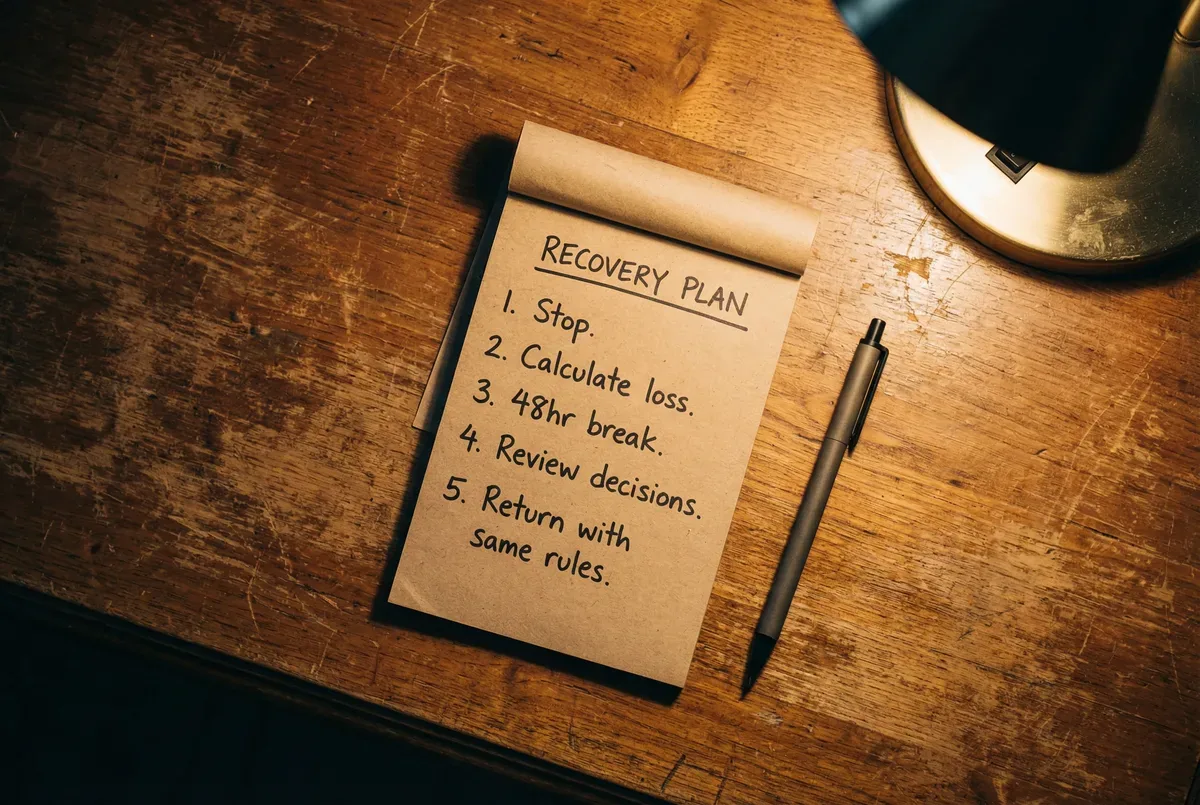 RECOVERY PLAN
1. Stop.
2. Calculate loss.
3. 48hr break.
4. Review decisions.
5. Return with
same rules.